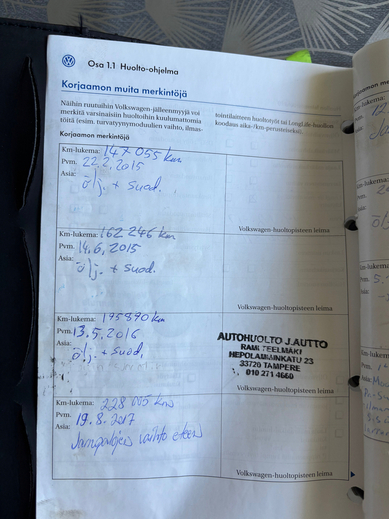 Osa 1.1 Huolto-ohjelma
Korjaamon muita merkintöjä
Näihin ruutuihin Volkswagen-jälleenmyyjä voi
merkitä varsinaisiin huoltoihin kuulumattomia
töitä (esim. turvatyynymoduulien vaihto, ilmas-
tointilaitteen huoltotyöt tai LongLife-huollon
koodaus aika-/km-perusteiseksi).
Korjaamon merkintöjä
Km-lukema: 147 055 km
Pvm. 22.2.2015
Asia: ölj. + suod.
Volkswagen-huoltopisteen leima
Km-lukema: 162 246 km
Pvm. 14.6.2015
Asia: ölj. + suod.
Volkswagen-huoltopisteen leima
Km-lukema: 195890 km
Pvm. 13.5.2016
Asia: ölj. + suod.
AUTOHUOLTO J.AUTTO
RAMI TEELMÄKI
HEPOLAMMINKATU 23
33720 TAMPERE
010 271 4660
Volkswagen-huoltopisteen leima
Km-lukema: 228 005 km
Pvm. 19.8.2017
Asia: Jarrupalojen vaihto eteen
Volkswagen-huoltopisteen leima